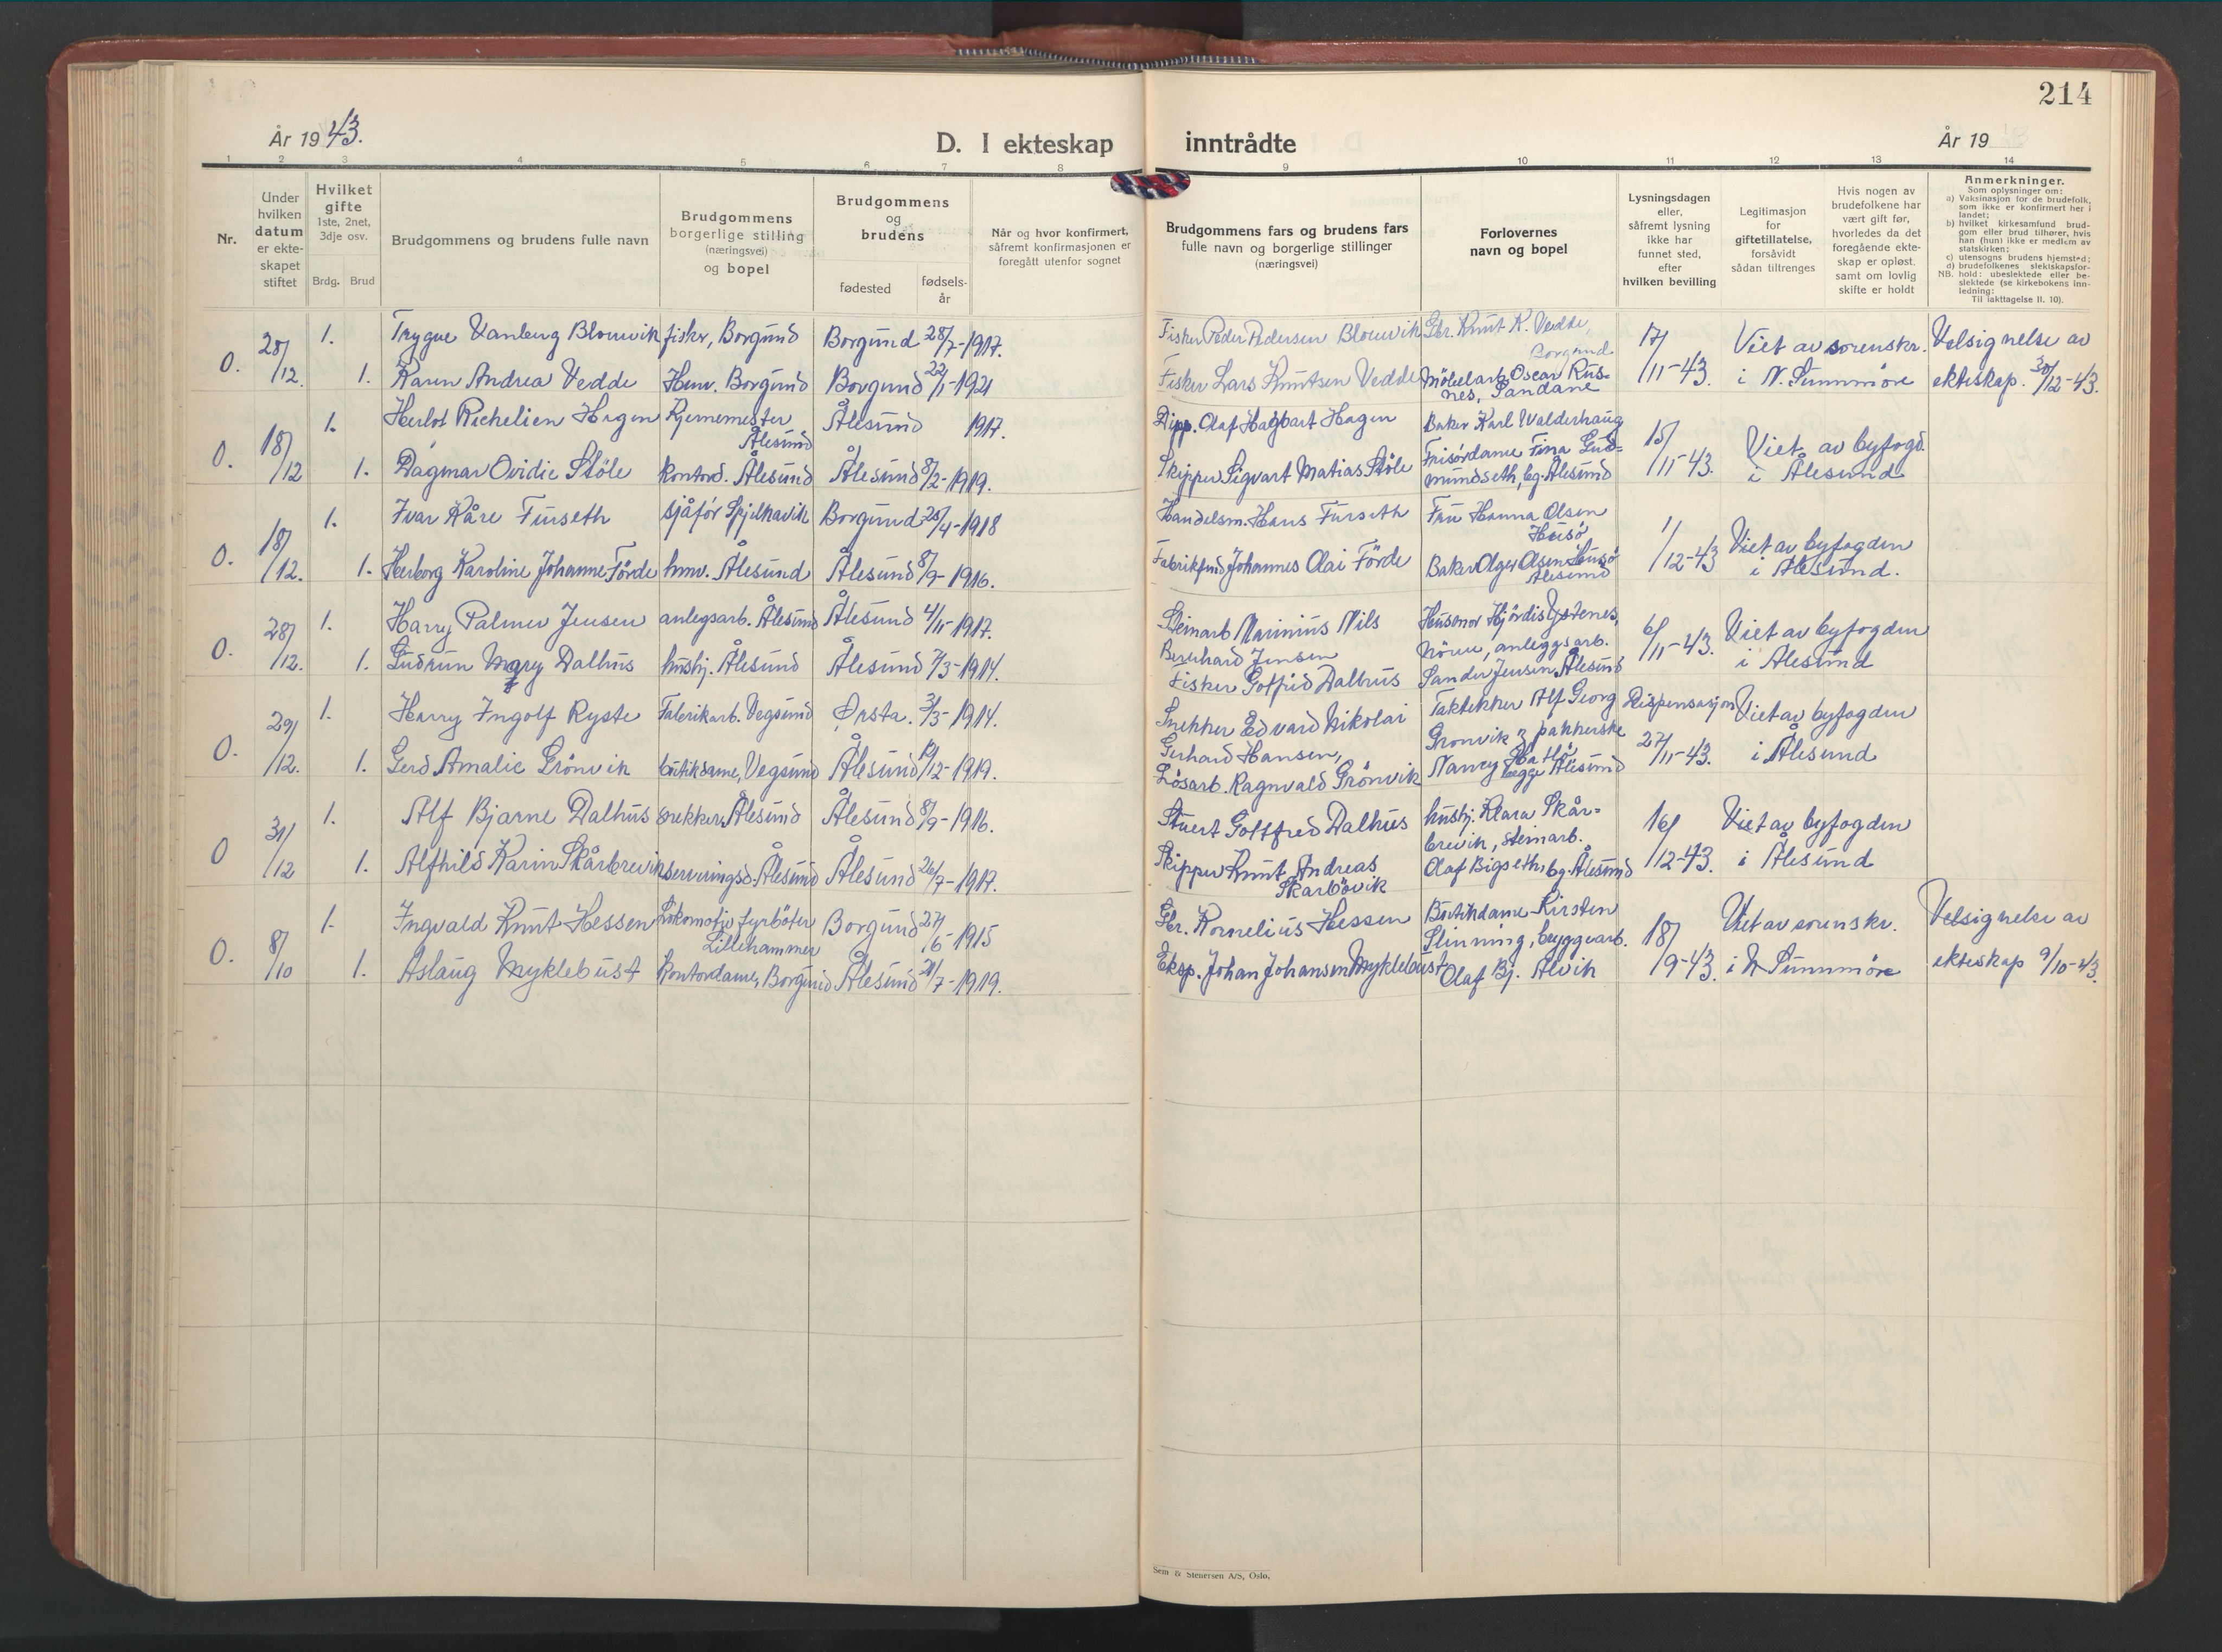 214
År 1943.
D. I ekteskap inntrådte
År 19
1 2 3 4 5 6 7 8 9 10 11 12 13 14
Nr.
Under hvilken datum er ekteskapet stiftet
Hvilket gifte 1ste, 2net, 3dje osv.
Brdg. Brud
Brudgommens og brudens fulle navn
Brudgommens borgerlige stilling (næringsvei) og bopel
Brudgommens og brudens
fødested
fødselsår
Når og hvor konfirmert, såfremt konfirmasjonen er foregått utenfor sognet
Brudgommens fars og brudens fars fulle navn og borgerlige stillinger (næringsvei)
Forlovernes navn og bopel
Lysningsdagen eller, såfremt lysning ikke har funnet sted, efter hvilken bevilling
Legitimasjon for giftetillatelse, forsåvidt sådan tiltrenges
Hvis nogen av brudefolkene har vært gift før, hvorledes da det foregående ekteskap er opløst, samt om lovlig skifte er holdt
Anmerkninger.
Som oplysninger om:
a) Vaksinasjon for de brudefolk, som ikke er konfirmert her i landet;
b) hvilket kirkesamfund brudgom eller brud tilhører, hvis han (hun) ikke er medlem av statskirken;
c) utensogns brudens hjemsted;
d) brudefolkenes slektskapsforhold: ubeslektede eller beslektede (se kirkebokens innledning:
NB.
Til iakttagelse II. 10).
O. 28/12. 1. Trygve Vanberg Blomvik fisker, Borgund Borgund 28/7-1917. Fisker Peder Pedersen Blomvik Gbr. Knut K. Vedde, Borgund 17/11-43. Viet av sorenskr. i N. Sunnmöre Velsignelse av ekteskap. 30/12-43.
1. Karen Andrea Vedde Hmv. Borgund Borgund 22/1-1921 Fisker Lars Knutsen Vedde Möbelarb. Oscar Rusnes, Sandane
O. 18/12 1. Herlof Richelien Hagen Kjernemester Ålesund Ålesund 1917. Dipp. Olaf Hagbart Hagen Baker Karl Walderhaug 15/11-43. Viet av byfogd. i Ålesund
1. Dagmar Ovidie Stöle kontord. Ålesund Ålesund 8/2-1919. Skipper Sigvart Matias Stöle Frisördame Fina Gudmundseth, bg. Ålesund
O. 18/12. 1. Ivar Kåre Furseth sjåför Spjelkavik Borgund 28/4-1918 Handelsm. Hans Furseth Fru Hanna Olsen Husö 1/12-43 Viet av byfogden i Ålesund.
1. Herborg Karoline Johanne Förde hmv. Ålesund Ålesund 8/9-1916. Johannes Olai Förde Baker Olger Olsen Husö Ålesund
O. 28/12. 1. Harry Palmer Jensen anlegsarb. Ålesund Ålesund 4/11-1917. Steinarb Marinius Nils Bernhard Jensen Husmor Hjördis Ystenes, Nörve, anleggsarb. 6/11-43. Viet av byfogden i Ålesund
1. Gudrun Mary Dalhus hushj. Ålesund Ålesund 7/3-1914. Fisker Gotfrid Dalhus Sander Jensen, Ålesund
O. 29/12. 1. Harry Ingolf Ryste Fabrikarb. Vegsund Ørsta. 3/3-1914. Snekker Edvard Nikolai Gerhard Hansen, Taktekker Alf Georg Grönvik & pakkerske Dispensasjon 27/11-43. Viet av byfogden i Ålesund
1. Gerd Amalie Grönvik butikdame, Vegsund Ålesund 19/12-1919. Lösarb. Ragnvald Grönvik Nancy begge Ålesund
O 31/12 1. Alf Bjarne Dalhus snekker, Ålesund Ålesund 8/9-1916. Stuert Gottfred Dalhus hushj. Klara Skårbrevik, steinarb. 16/12-43. Viet av byfogden i Ålesund
1. Alfhild Karin Skårbrevik serveringsd. Ålesund Ålesund 26/7-1917. Skipper Knut Andreas Skarbövik Olaf Bigseth, bg. Ålesund
O. 8/10 1. Ingvald Knut Hessen Lokomotiv fyrböter Lillehammer Borgund 27/6-1915 Gbr. Kornelius Hessen Butikdame Kirsten Slinning, bryggearb. 18/9-43. Viet av sorenskr. i N Sunnmöre Velsignelse av ekteskap 9/10-43.
1. Aslaug Myklebust Kontordame, Borgund Ålesund 21/7-1919. Eksp. Johan Johansen Myklebust Olaf Bj. Alvik
Sem & Stenersen A/S, Oslo.